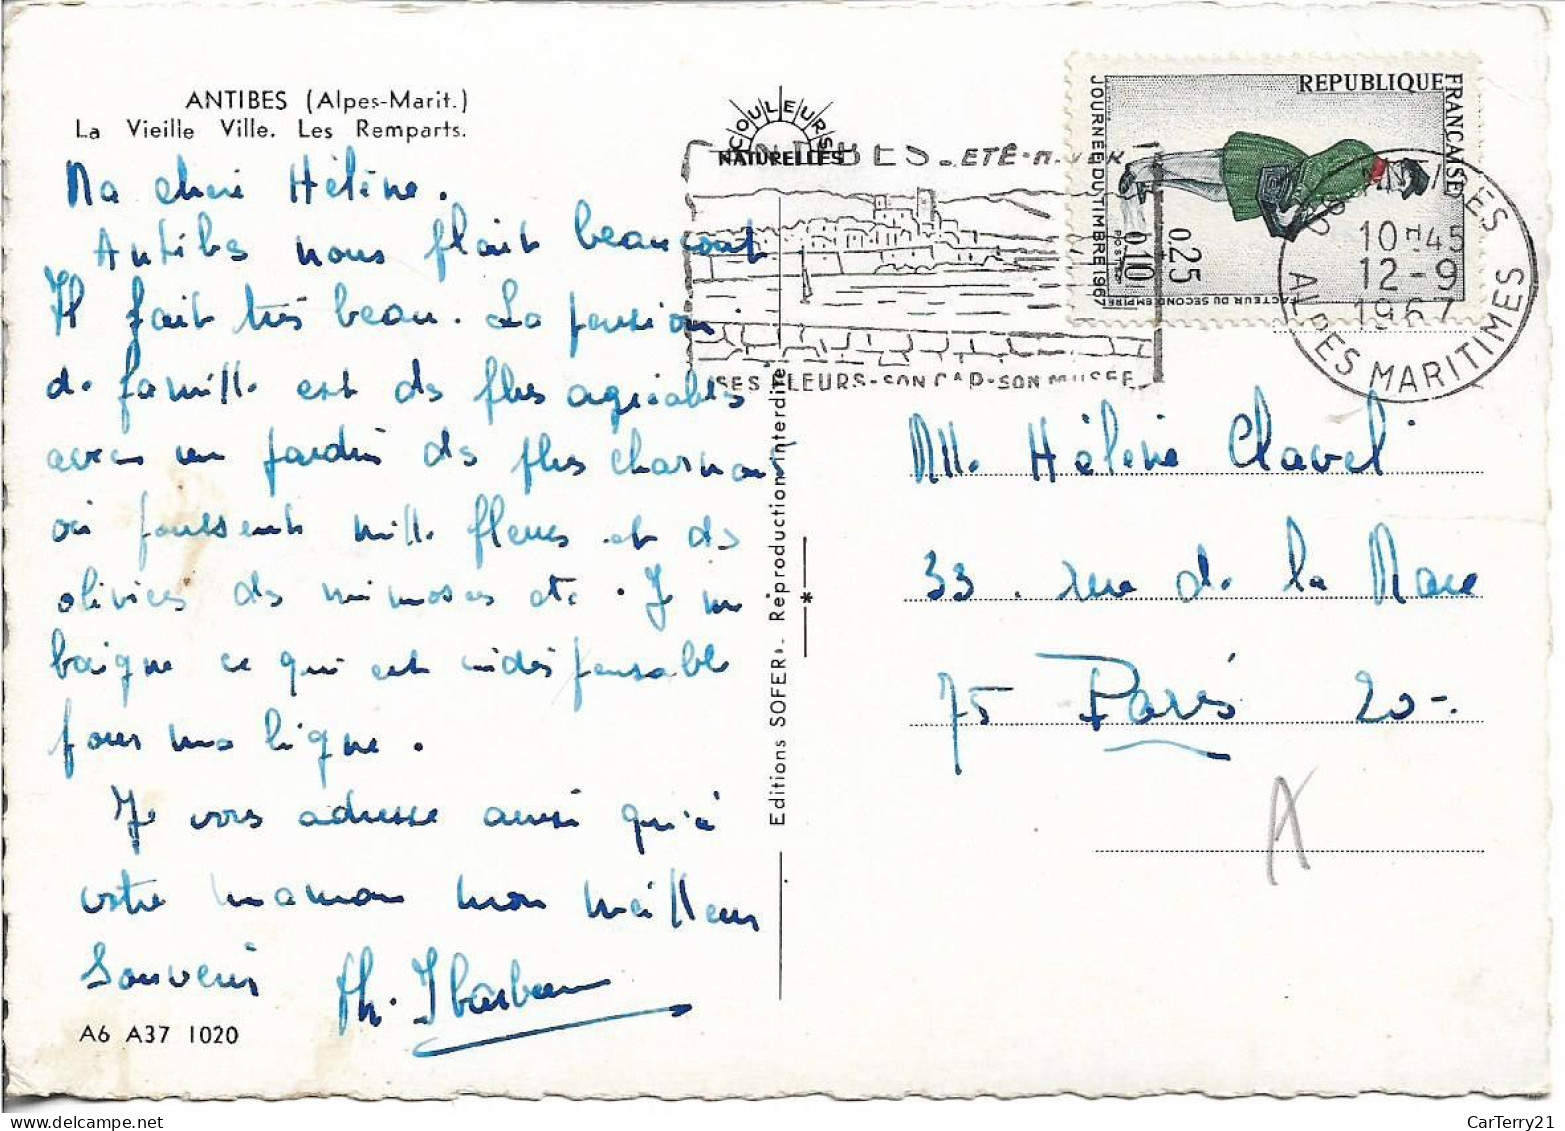 ANTIBES (Alpes-Marit.)
La Vieille Ville. Les Remparts.
Ma chère Hélène.
Antibes nous plait beaucoup
Il fait très beau. La pension
de famille est des plus agréables
avec un jardin des plus charmant
où poussent mille fleurs et des
oliviers des mimosas etc. Je me
baigne ce qui est indispensable
pour ma ligne.
Je vous adresse ainsi qu'à
votre maman mon meilleur
souvenir
A6 A37 1020
COULEURS
NATURELLES
Editions SOFER. Reproduction interdite
*
ANTIBES - ETÉ-HIVER
SES FLEURS-SON CAP-SON MUSEE
REPUBLIQUE FRANCAISE
JOURNEE DU TIMBRE 1967
POSTES
0.25
0.10
FACTEUR DU SECOND EMPIRE
ANTIBES
10H45
12-9
1967
ALPES MARITIMES
Mlle Hélène Clavel
33. rue de la Mare
75 Paris 20-.
A
CarTerry21